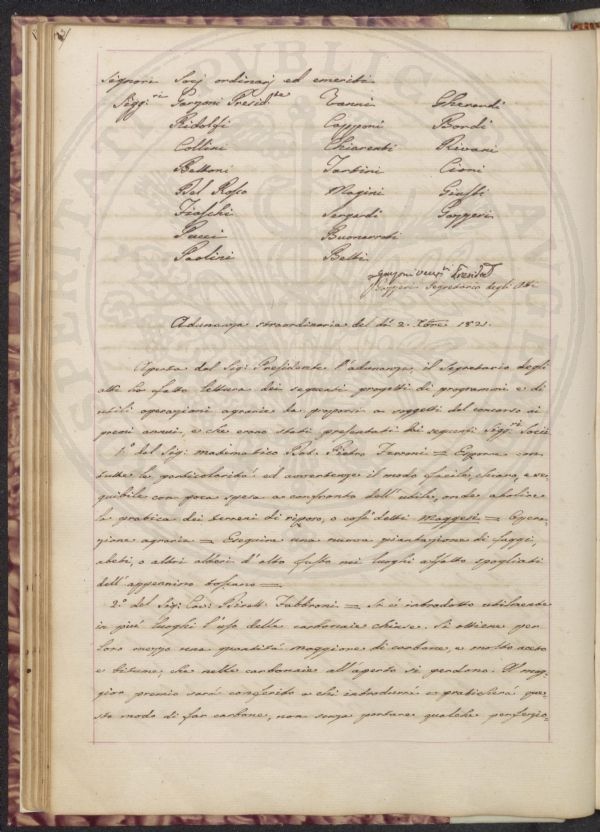 Signori Socj ordinarj ed emeriti
Sigg.ri Garzoni Presid.te Vanni Gherardi
Ridolfi Capponi Bordi
Collini Chiarenti Rivani
Bettoni Tartini Cioni
Del Rosso Magini Giusti
Fiaschi Sergardi Gazzeri
Pucci Buonarroti
Paolini Betti
Presid.
Gazzeri Segretario degli Atti
Adunanza straordinaria del dì 2. Xbre 1821.
Aperta dal Sig. Presidente l'adunanza, il Segretario degli
atti ha fatto lettura dei seguenti progetti di programmi e di
utili operazioni agrarie da proporsi a soggetti del concorso ai
premi annui, e che erano stati presentati dai seguenti Sigg.ri Socii
1.° del Sig. matematico Pietro Ferroni = Esporre con
tutte le particolarità ed avvertenze il modo facile, chiaro, e ese-
guibile con poca spesa a confronto dell'utile, onde abolire
la pratica dei terreni di riposo, o così detti Maggesi = Opera-
zione agraria = Eseguire una nuova piantazione di faggi,
abeti, o altri alberi d'alto fusto nei luoghi affatto spogliati
dell'appennino toscano =
2.° del Sig. Cav. Fabbroni = Si è introdotto utilmente
in più luoghi l'uso delle carbonaie chiuse. Si ottiene per
loro mezzo una quantità maggiore di carbone, e molto aceto
e bitume, che nelle carbonaie all'aperto si perdono. Il mag-
gior premio sarà conferito a chi introdurrà e praticherà que-
sto modo di far carbone, non senza portare qualche perfezio-